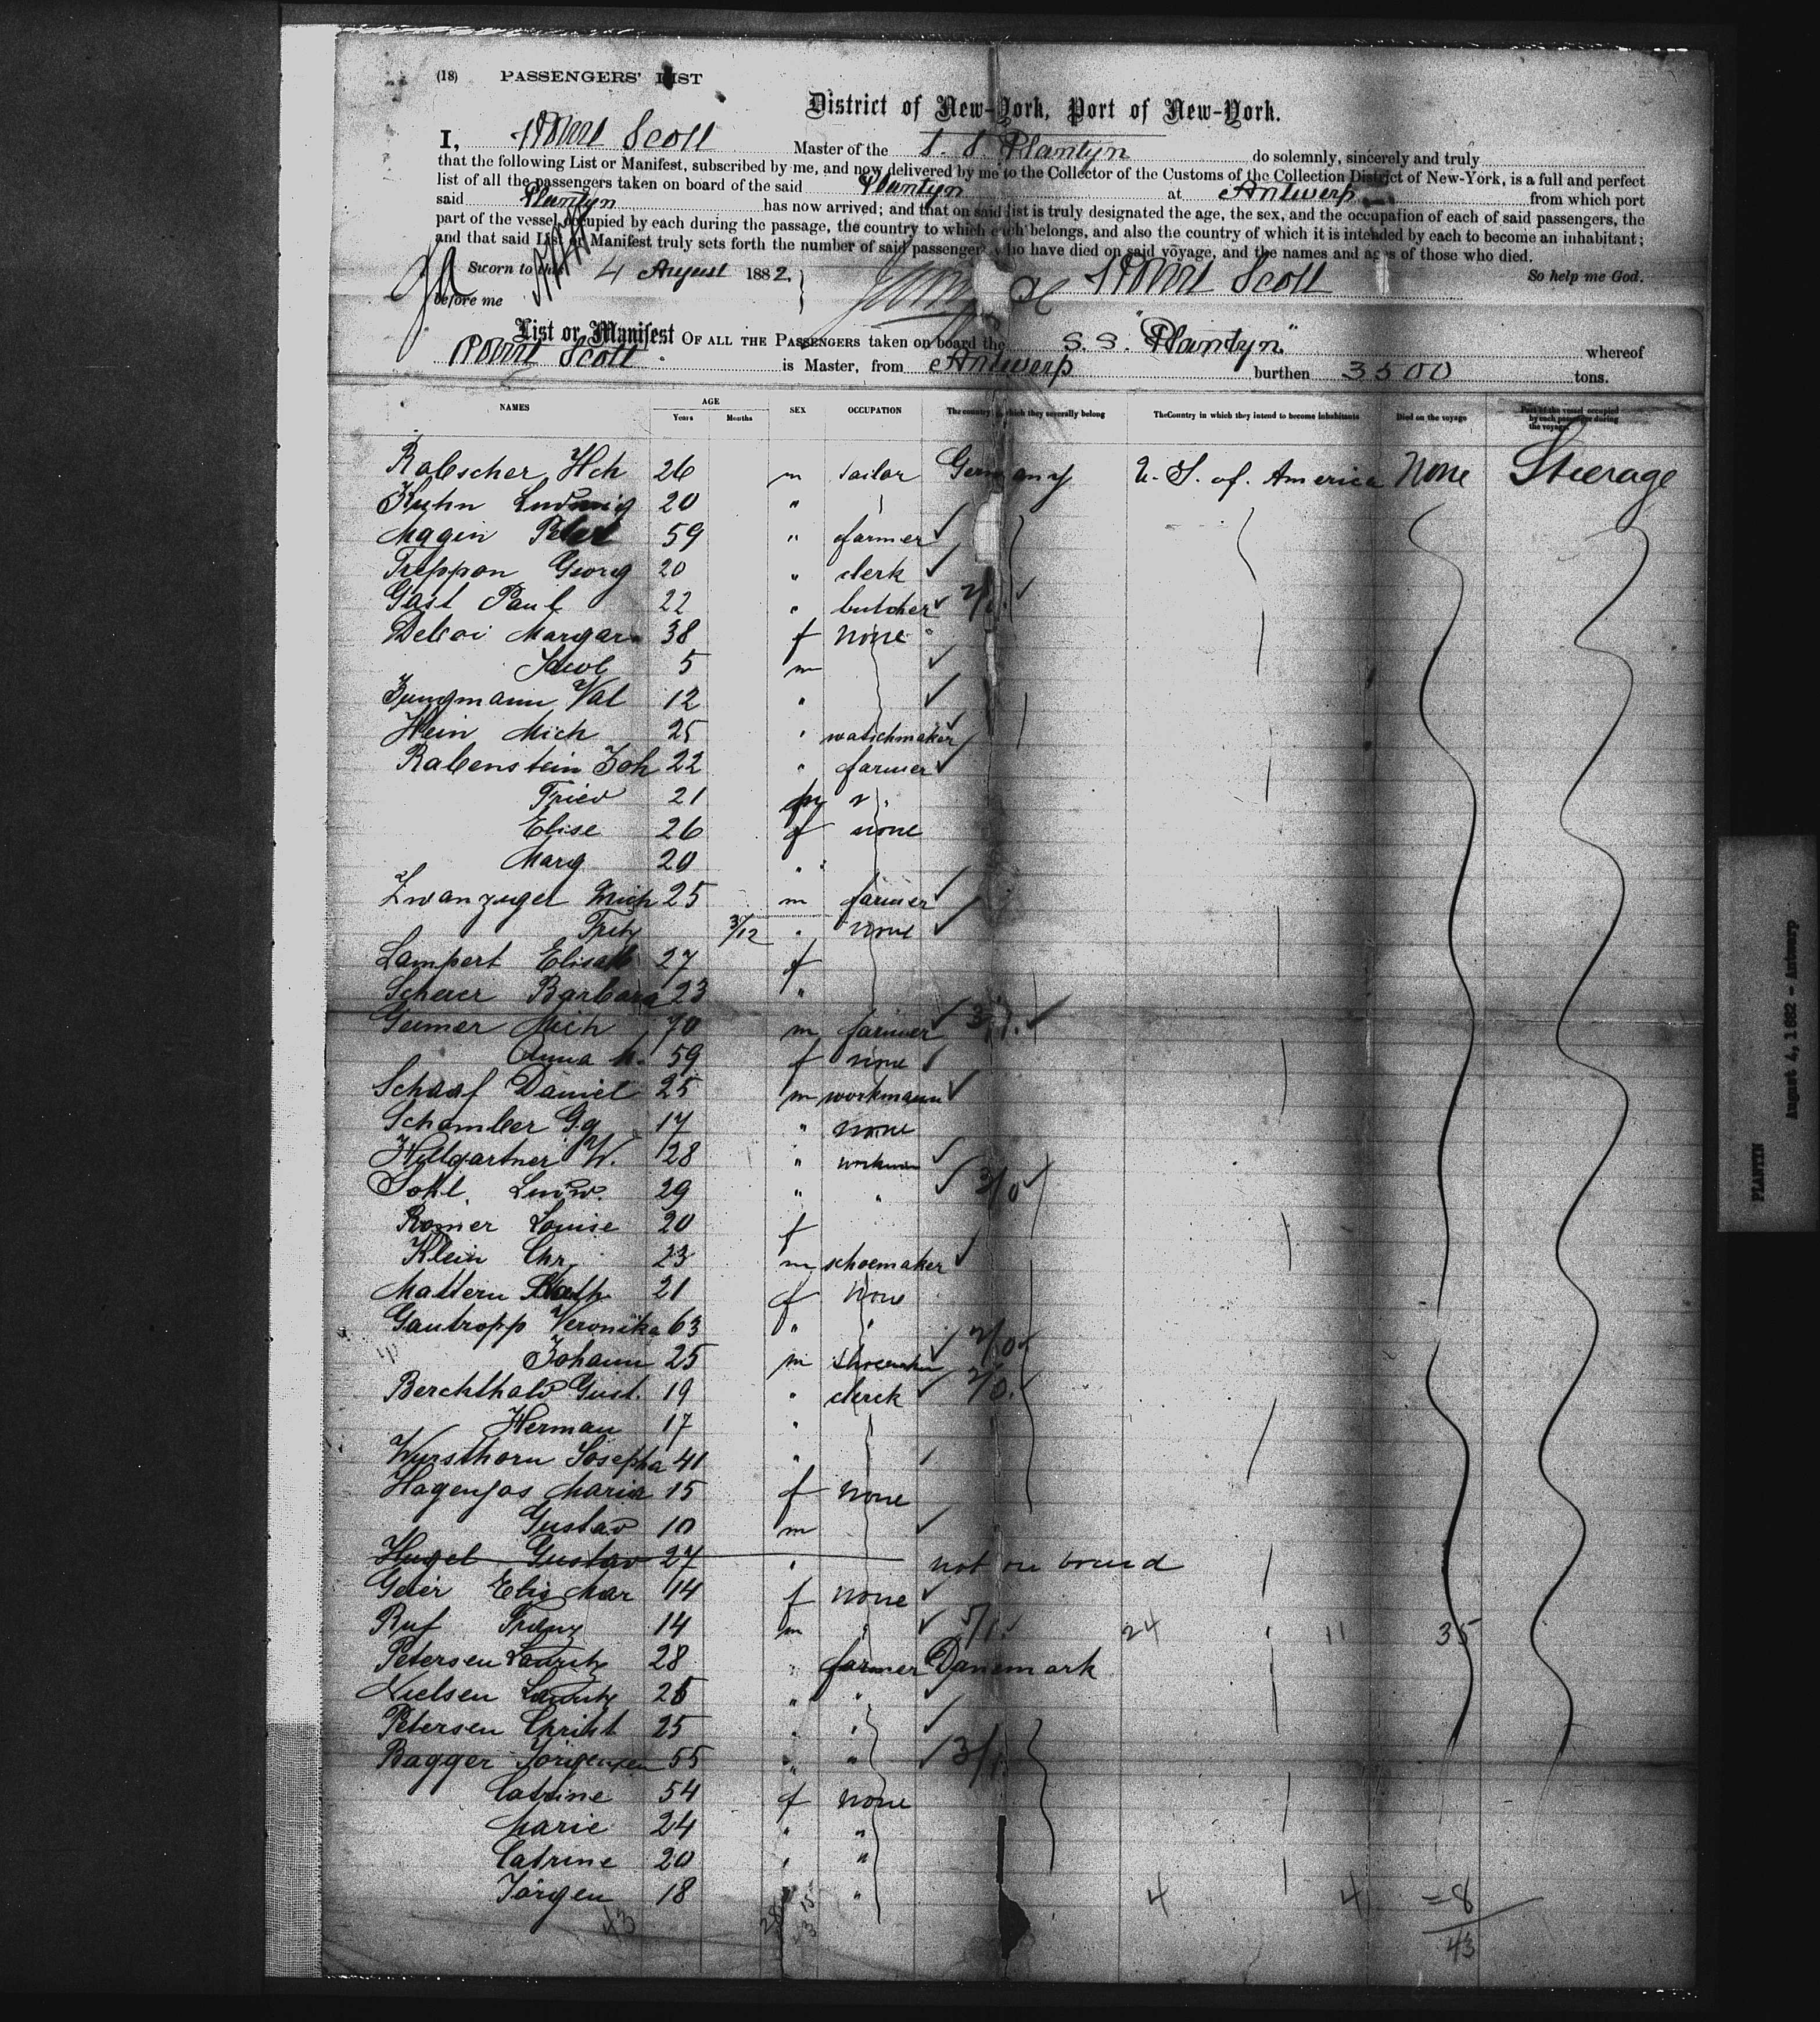 (18) PASSENGERS' LIST
District of New-York, Port of New-York.
I, Robert Scott Master of the S. S. Plantyn do solemnly, sincerely and truly
that the following List or Manifest, subscribed by me, and now delivered by me to the Collector of the Customs of the Collection District of New-York, is a full and perfect
list of all the passengers taken on board of the said Plantyn at Antwerp from which port
said Plantyn has now arrived; and that on said list is truly designated the age, the sex, and the occupation of each of said passengers, the
part of the vessel occupied by each during the passage, the country to which each belongs, and also the country of which it is intended by each to become an inhabitant;
and that said List or Manifest truly sets forth the number of said passengers who have died on said voyage, and the names and ages of those who died.
Sworn to this 4 August 1882. Robert Scott So help me God.
before me
List or Manifest OF ALL THE PASSENGERS taken on board the S. S. "Plantyn" whereof
Robert Scott is Master, from Antwerp burthen 3500 tons.
NAMES AGE Years Months SEX OCCUPATION The country to which they severally belong The Country in which they intend to become inhabitants Died on the voyage Part of the vessel occupied by each passenger during the voyage
Rabscher Hch 26 m tailor Germany U. S. of America None Steerage
Kuhn Ludwig 20 "
Magin Peter 59 " farmer
Treppon Georg 20 " clerk
Gast Paul 22 " butcher 2/0.
Deboi Margar 38 f none
Jacob 5 m
Jungmann Val 12 "
Hein Mich 25 " watschmaker
Rabenstein Joh 22 " farmer
Fried 21 m "
Elise 26 f none
Marg 20 "
Zwanziger Mich 25 m farmer
Fritz 3/12 " none
Lampert Elisab 27 f
Scherer Barbara 23 "
Geimer Mich 70 m farmer 3/1.
Anna M. 59 f none
Schaaf Daniel 25 m workmann
Schamber Gg 17 " none
Hiltgartner W. 28 " workman
Pohl Ludw. 29 " " 3/0
Romer Louise 20 f
Klein Chr. 23 m schoemaker
Mattern Kath 21 f None
Gautropp Veronika 63 " "
Johann 25 m shoemaker 2/0
Berchthald Gust. 19 " clerck 2/0.
Herman 17 "
Wursthorn Josepha 41 "
Hagenjos Maria 15 f none
Gustav 10 m
Hugel Gustav 27 " not on board
Geier Elis Mar 14 f none
Ruf Franz 14 m 5/1. 24 11 35
Petersen Lauritz 28 " farmer Danemark
Nielsen Lauritz 26 " "
Petersen Christ 25 " "
Bagger Jorgensen 55 " " 3/1.
Catrine 54 f none
Marie 24 " "
Catrine 20 " "
Jörgen 18 " 4 4 =8
43 28 15 43 43
PLANTYN August 4, 1882 - Antwerp